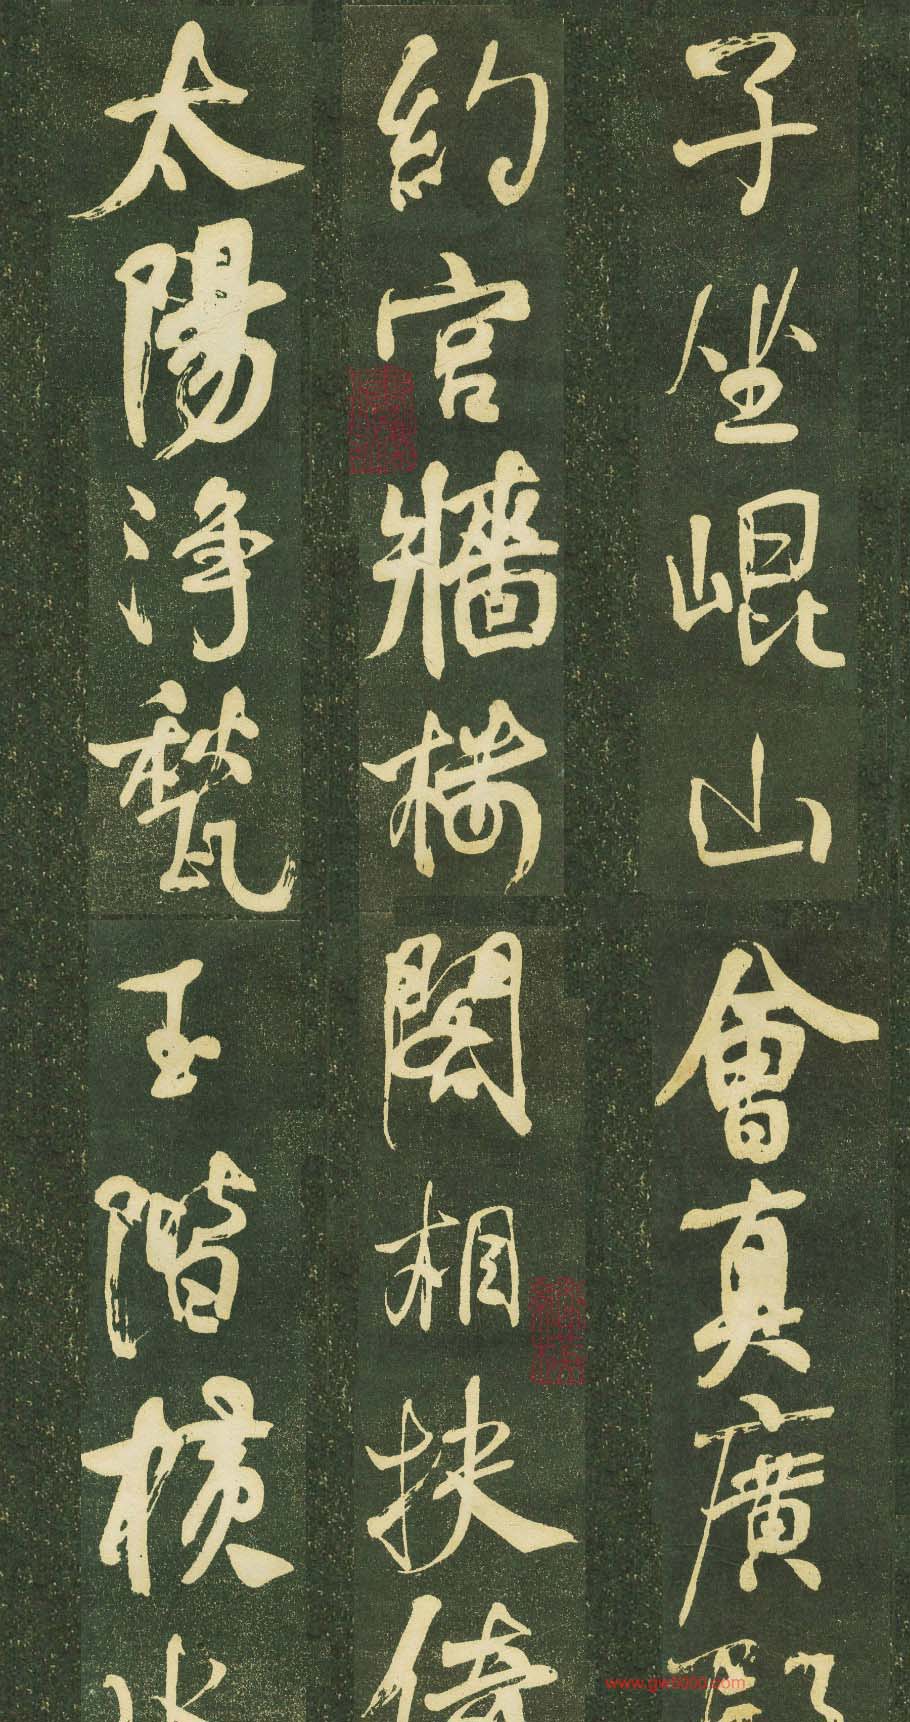 子坐崐山會真廣殿
約宫牆樓閣相扶倚
太陽淨甃玉階横水
www.gw8000.com